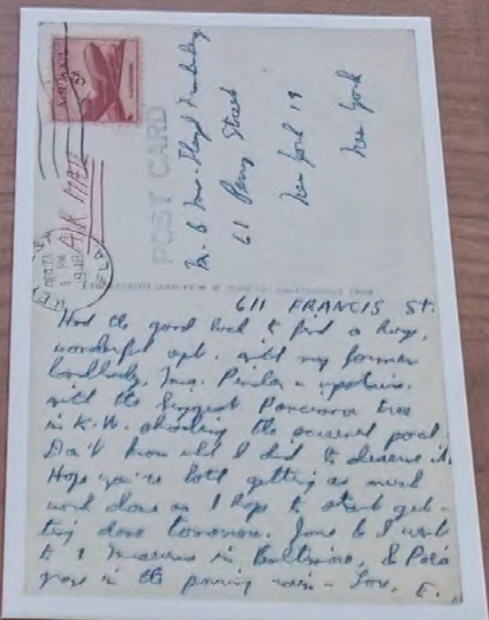 AIR MAIL
5¢
AIR MAIL
DEC 23
5 PM
1948
FLA
POST CARD
Mr. & Mrs. Lloyd
61 Perry Street
New York 19
New York
611 FRANCIS ST.
Had the good luck to find a huge,
wonderful apt. with my former
landlady, Mrs. Pindar – upstairs,
with the biggest Ponciana tree
in K.W. shading the screened porch.
Don't know what I did to deserve it.
Hope you're both getting as much
work done as I hope to start get-
ting done tomorrow. Jane & I went
to 2 museums in Baltimore, & Poe's
grave in the pouring rain – Love, E.